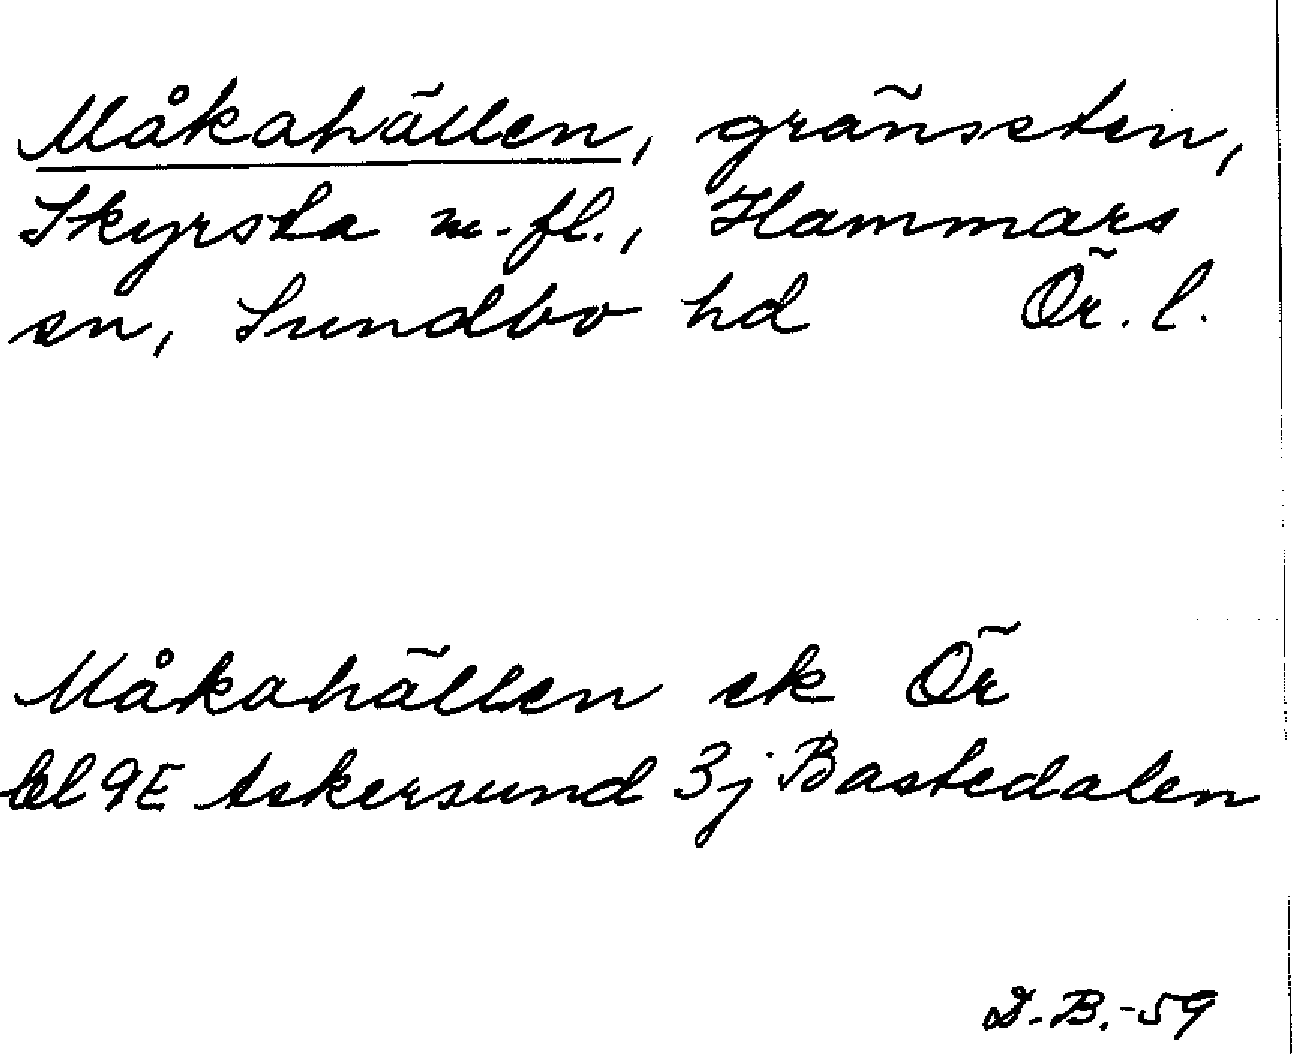 Måkahällen, gränssten,
Skyrsta m.fl., Hammars
sn, Sundbo hd Ör. l.
Måkahällen ek Ör
bl 9E Askersund 3j Bastedalen
D.B.-59